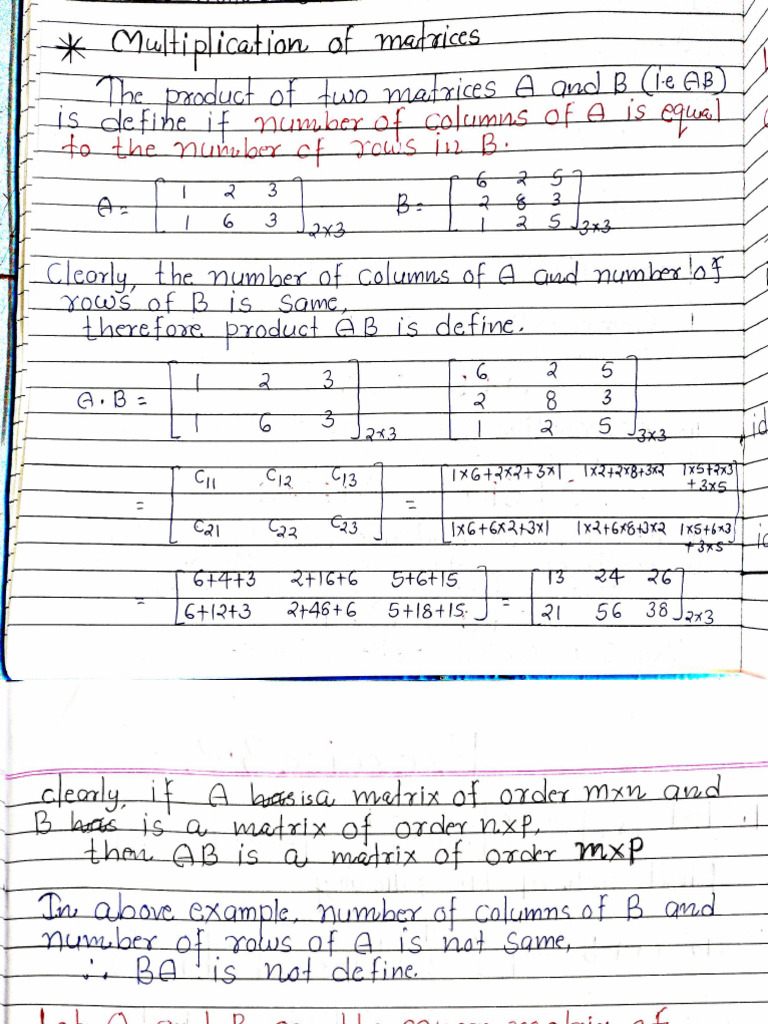 * Multiplication of matrices
The product of two matrices A and B (i.e AB)
is define if number of columns of A is equal
to the number of rows in B.
A = [ 1 2 3
1 6 3 ]2×3
B = [ 6 2 5
2 8 3
1 2 5 ]3×3
Clearly, the number of columns of A and number of
rows of B is same,
therefore product AB is define.
A · B = [ 1 2 3
1 6 3 ]2×3
[ 6 2 5
2 8 3
1 2 5 ]3×3
= [ C11 C12 C13
C21 C22 C23 ]
= [ 1×6+2×2+3×1 1×2+2×8+3×2 1×5+2×3+3×5
1×6+6×2+3×1 1×2+6×8+3×2 1×5+6×3+3×5 ]
= [ 6+4+3 2+16+6 5+6+15
6+12+3 2+48+6 5+18+15 ]
= [ 13 24 26
21 56 38 ]2×3
clearly, if A is a matrix of order m×n and
B is a matrix of order n×p,
then AB is a matrix of order m×p
In above example, number of columns of B and
number of rows of A is not same,
∴ BA is not define.